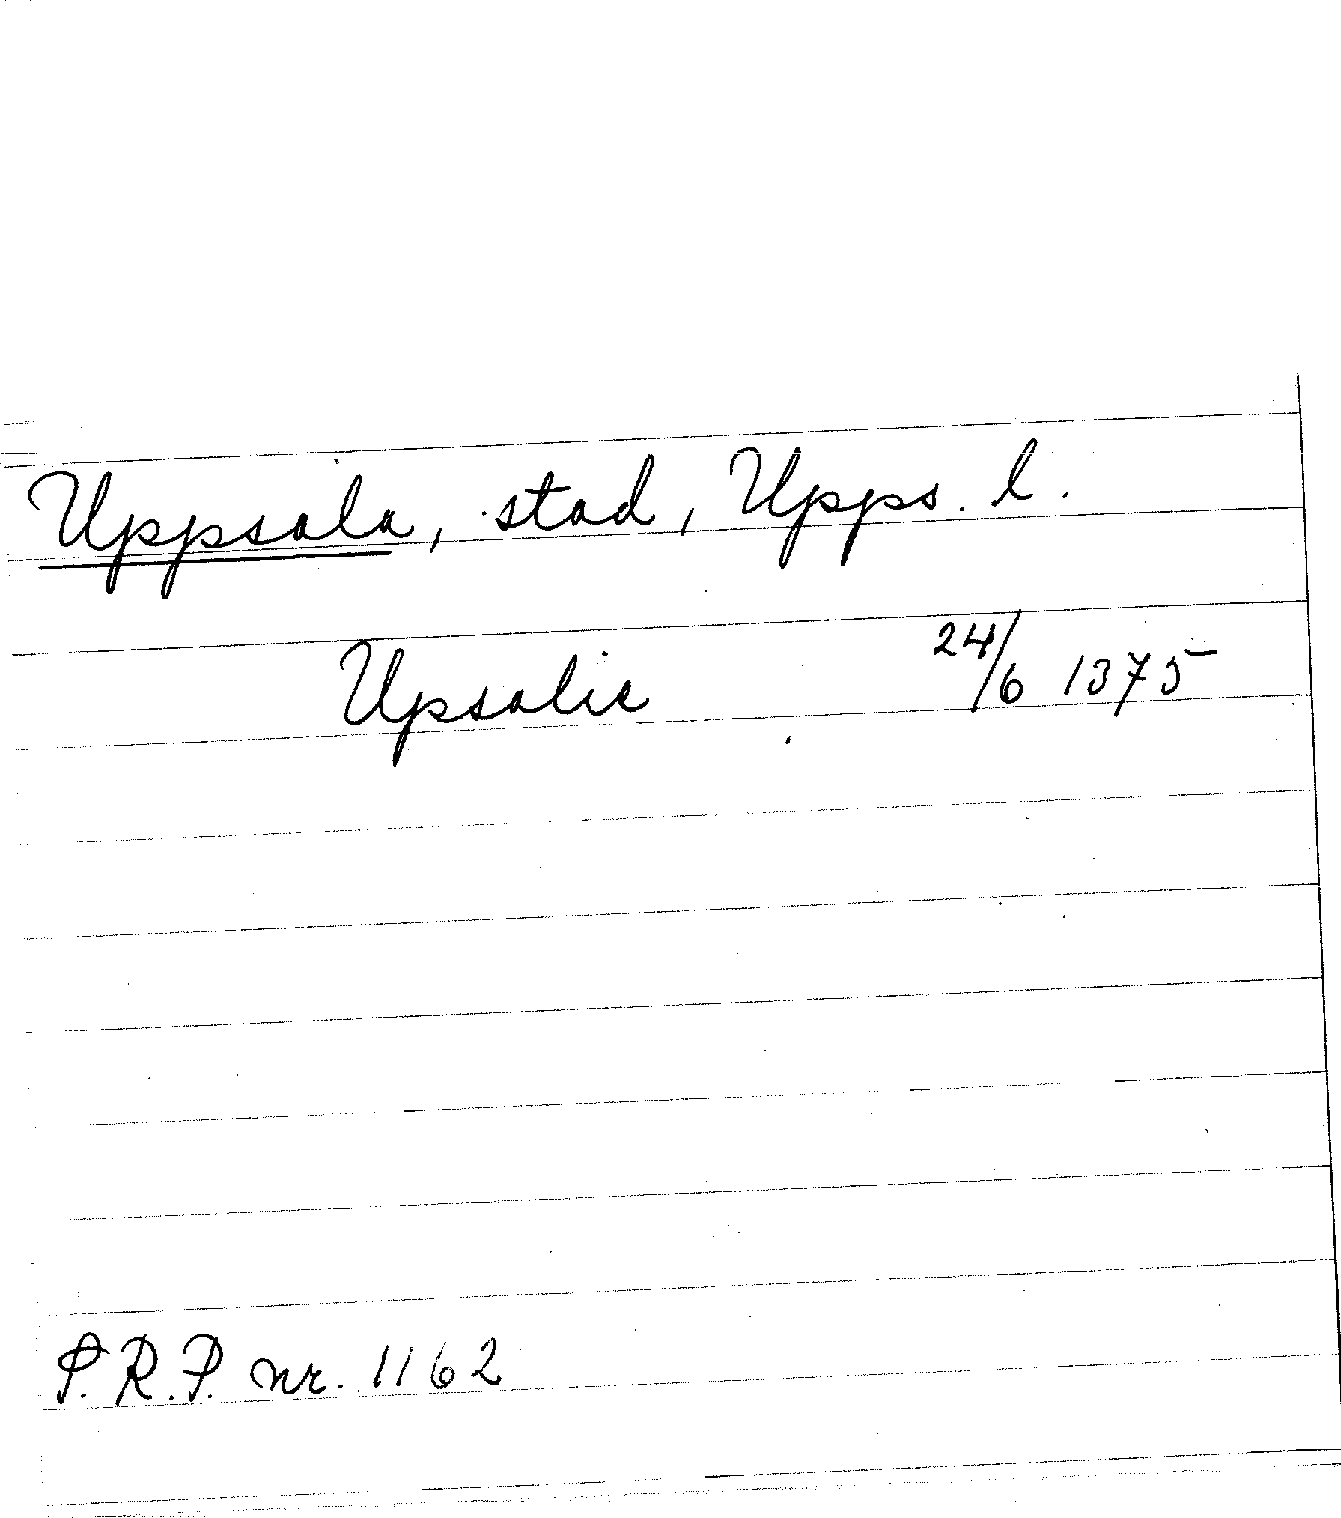 Uppsala, stad, Upps. l.
Upsalie 24/6 1375
P.R.P. nr. 1162